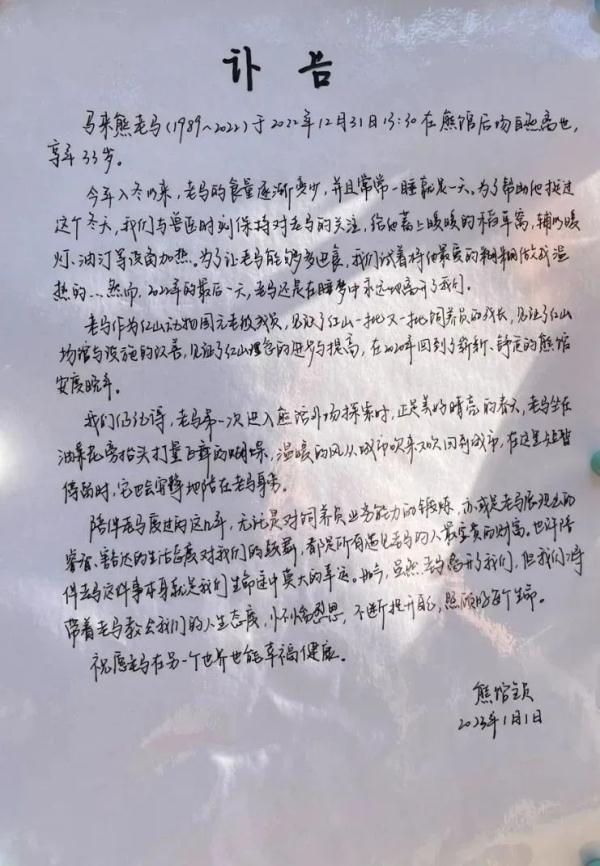 讣 告
马来熊老马(1989~2022)于2022年12月31日13:30在熊馆后场自然离世,
享年33岁。
今年入冬以来,老马的食量逐渐变少,并且常常一睡就是一天。为了帮助他挺过
这个冬天,我们与兽医时刻保持对老马的关注,给他蓋上暖暖的稻草窝,辅以暖
灯、油汀等设备加热。为了让老马能够多进食,我们试着将他最爱的糊糊做成温
热的...然而,2022年的最后一天,老马还是在睡梦中永远地离开了我们。
老马作为红山动物园元老级成员,见证了红山一批又一批饲养员的成长,见证了红山
场馆与设施的改善,见证了红山理念的进步与提高,在2020年回到了崭新、舒适的熊馆
安度晚年。
我们仍记得,老马第一次进入熊馆外场探索时,正是美好晴亮的春天,老马坐在
油菜花旁抬头打量飞舞的蝴蝶,温暖的风从城市吹来又吹回到城市,在这里短暂
停留时,它也会安静地陪在老马身旁。
陪伴老马度过的这几年,无论是对饲养员业务能力的锻炼,亦或是老马展现出的
睿智、豁达的生活态度对我们的鼓舞,都是所有遇见老马的人最宝贵的财富。也许陪
伴老马这件事本身就是我们生命途中莫大的幸运。如今,虽然老马离开了我们,但我们将
带着老马教会我们的人生态度,怀恩思,不断提升自己,照顾好每个生命。
祝愿老马在另一个世界也能幸福健康。
熊馆全员
2023年1月1日